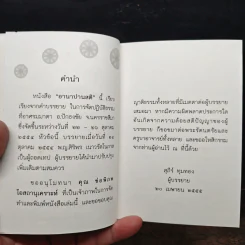 คำนำ
หนังสือ "อานาปานสติ" นี้ เรียบ
เรียงจากคำบรรยาย ในการจัดปฏิบัติธรรม
ซึ่งจัดขึ้นระหว่างวันที่
ตุลาคม ๒๕๕๔
เป็นผู้ถอดเทป ผู้บรรยายได้นำมาปรับปรุง
เพิ่มเติมตามสมควร
ขออนุโมทนา คุณ
ที่เป็นเจ้าภาพในการจัด
ทำและพิมพ์หนังสือเล่มนี้ และขอขอบคุณ
ญาติธรรมทั้งหลายที่มีเมตตาต่อผู้บรรยาย
เสมอมา หากมีความผิดพลาดประการใด
อันเกิดจากความด้อยสติปัญญาของผู้
บรรยาย ก็ขอขมาต่อพระรัตนตรัยและ
ครูบาอาจารย์ทั้งหลาย และขออโหสิกรรม
จากท่านผู้อ่านไว้ ณ ที่นี้ด้วย
สุภีร์ ทุมทอง
ผู้บรรยาย
๒๐ เมษายน ๒๕๕๕